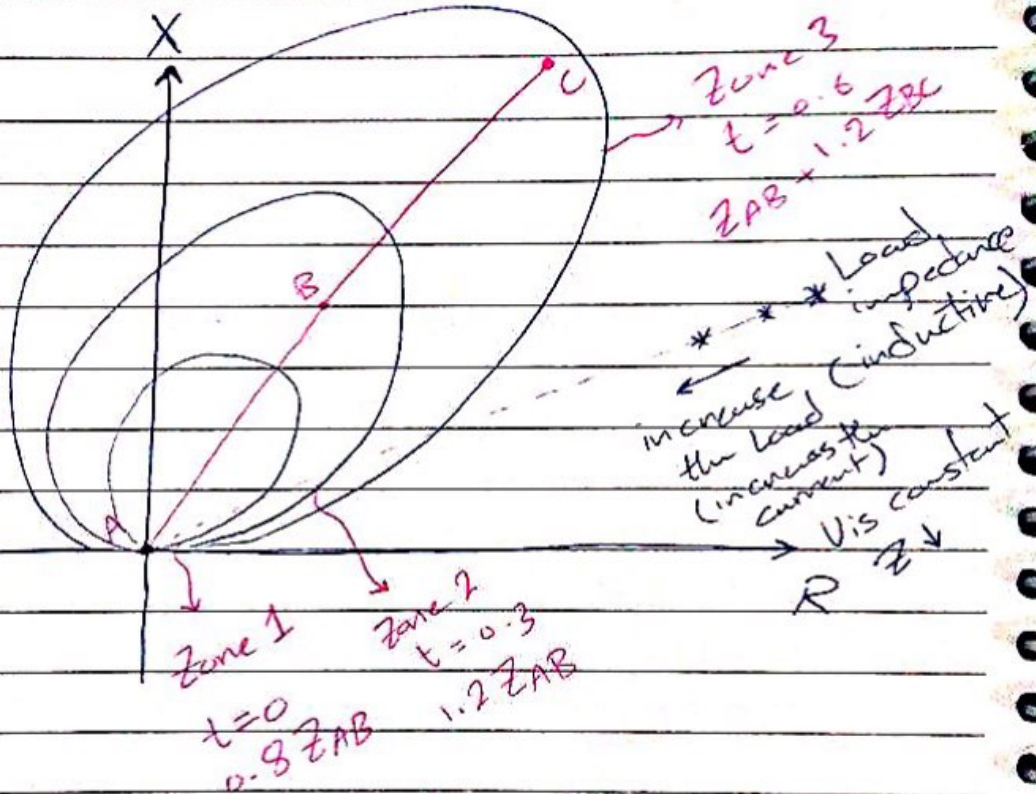 X
C
Zone 3
t = 0.6
ZAB + 1.2 ZBC
B
Load
impedance
(inductive)
increase
the Load
(increase the
current)
V is constant
Z ↓
A
R
Zone 1
t=0
0.8 ZAB
Zone 2
t = 0.3
1.2 ZAB